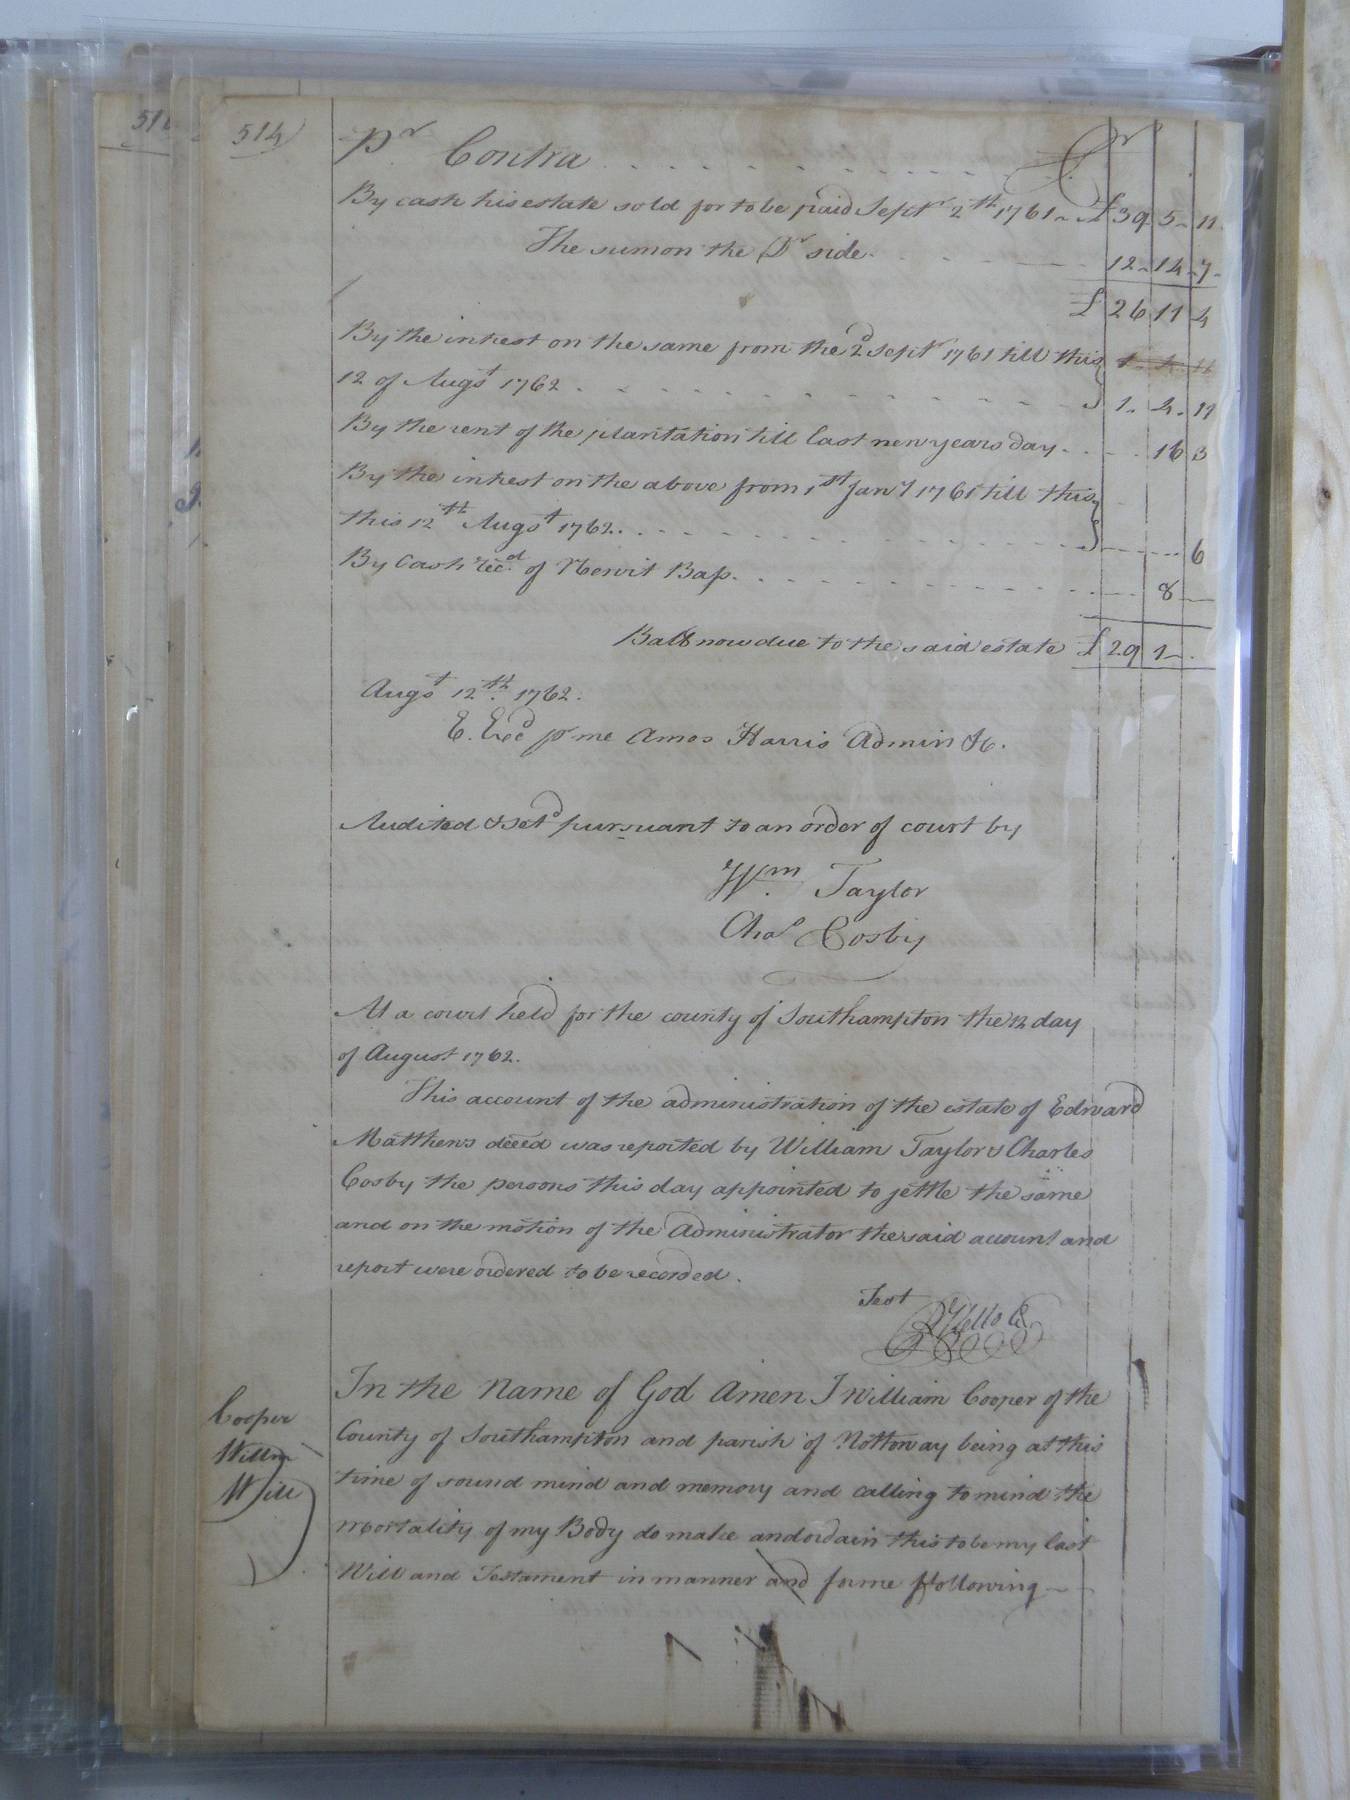 514
Pr Contra . . . . . . . . . . . Cr
By cash his estate sold for to be paid Septr 2th 1761 - £ 39 5 - 11
The sum on the Dr side . . . . . 12 - 14 - 7 -
£ 26 11 4
By the intrest on the same from the 2d Septr 1761 till this
12 of Augst 1762 . . . . . . . . . . 1 - 4 - 11
By the rent of the plantation till last new years day . . . . 16 3
By the intrest on the above from 1st Jany 1761 till this
this 12th Augst 1762 . . . . . . . . . . 6
By Cash recd. of Hervit Bass . . . . . . . . . 8 —
Balle now due to the said estate £ 29 1 - .
Augst 12th. 1762.
E. Excd pr me Amos Harris Admin &c.
Audited & Setd pursuant to an order of court by
Wm. Taylor
Chas Cosby
At a court held for the county of Southampton the 12 day
of August 1762.
This account of the administration of the estate of Edward
Matthews deced was reported by William Taylor & Charles
Cosby the persons this day appointed to settle the same
and on the motion of the Administrator the said account and
report were ordered to be recorded.
Test
R Kello Cl.
Cooper
Willm
Will
In the Name of God Amen I William Cooper of the
County of Southampton and parish of Nottoway being at this
time of sound mind and memory and calling to mind the
mortality of my Body do make and ordain this to be my last
Will and Testament in manner and forme following —